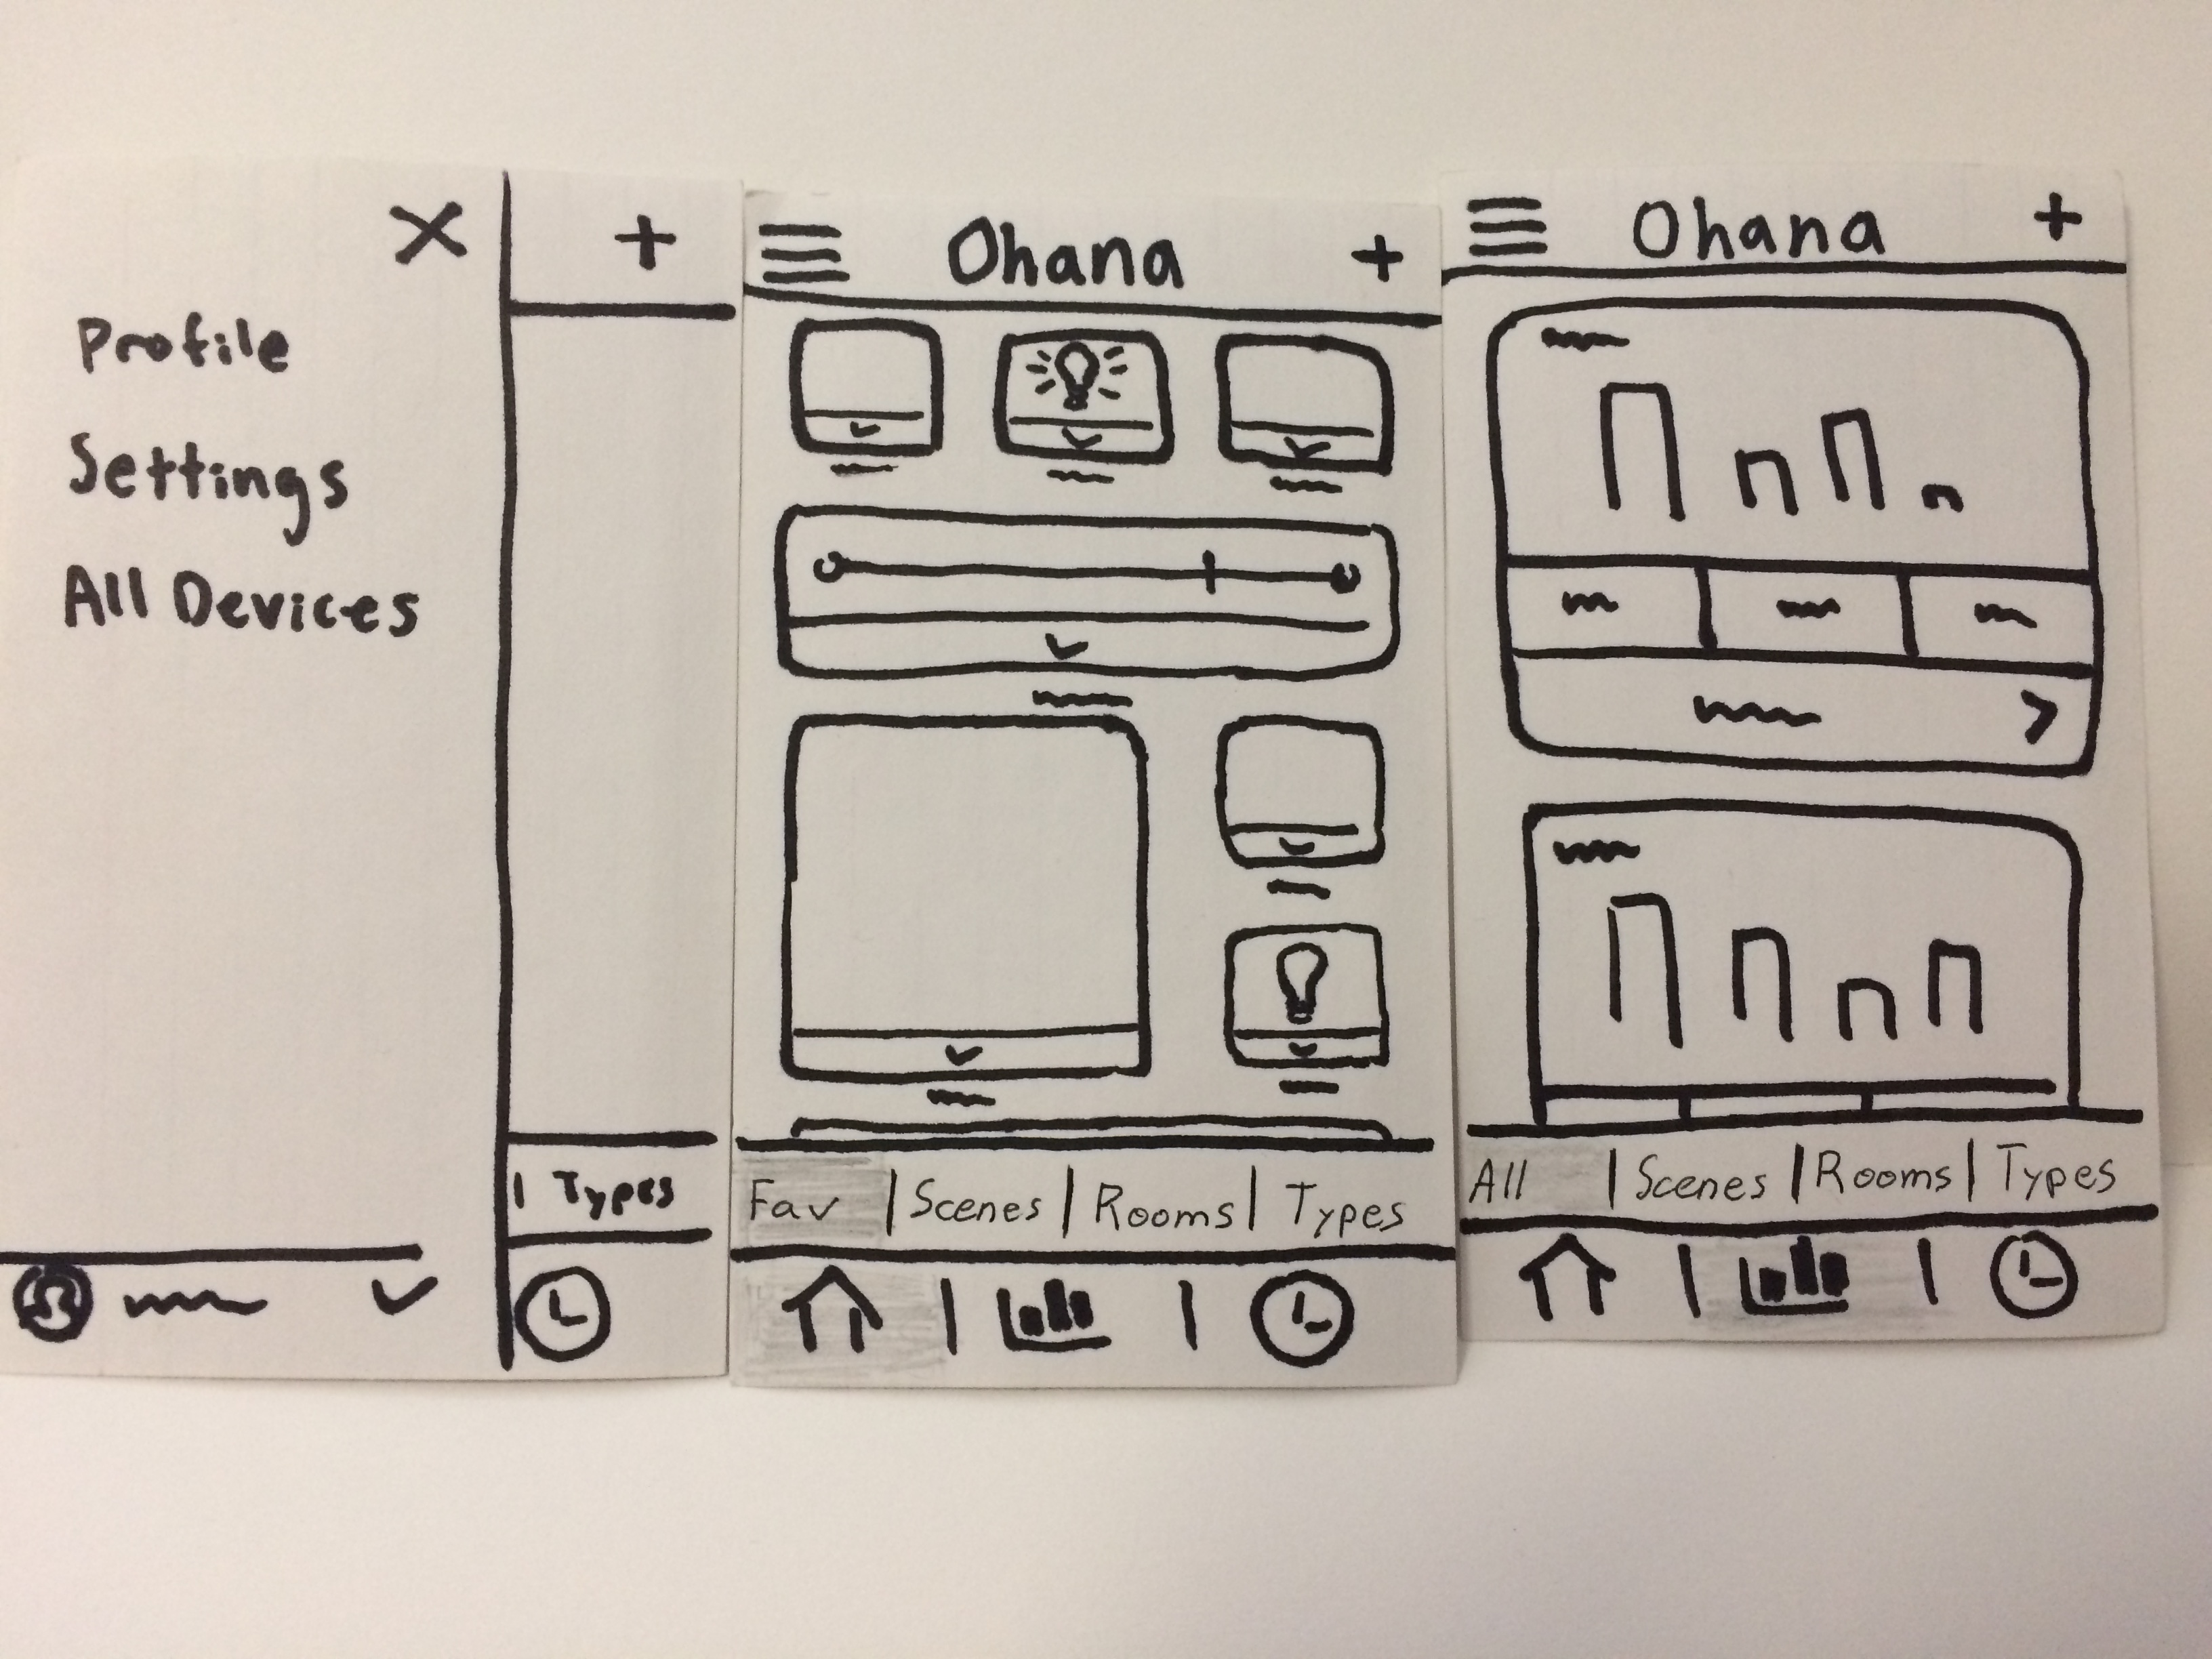 Profile
Settings
All Devices
| Types
Ohana
Fav | Scenes | Rooms | Types
Ohana
All | Scenes | Rooms | Types